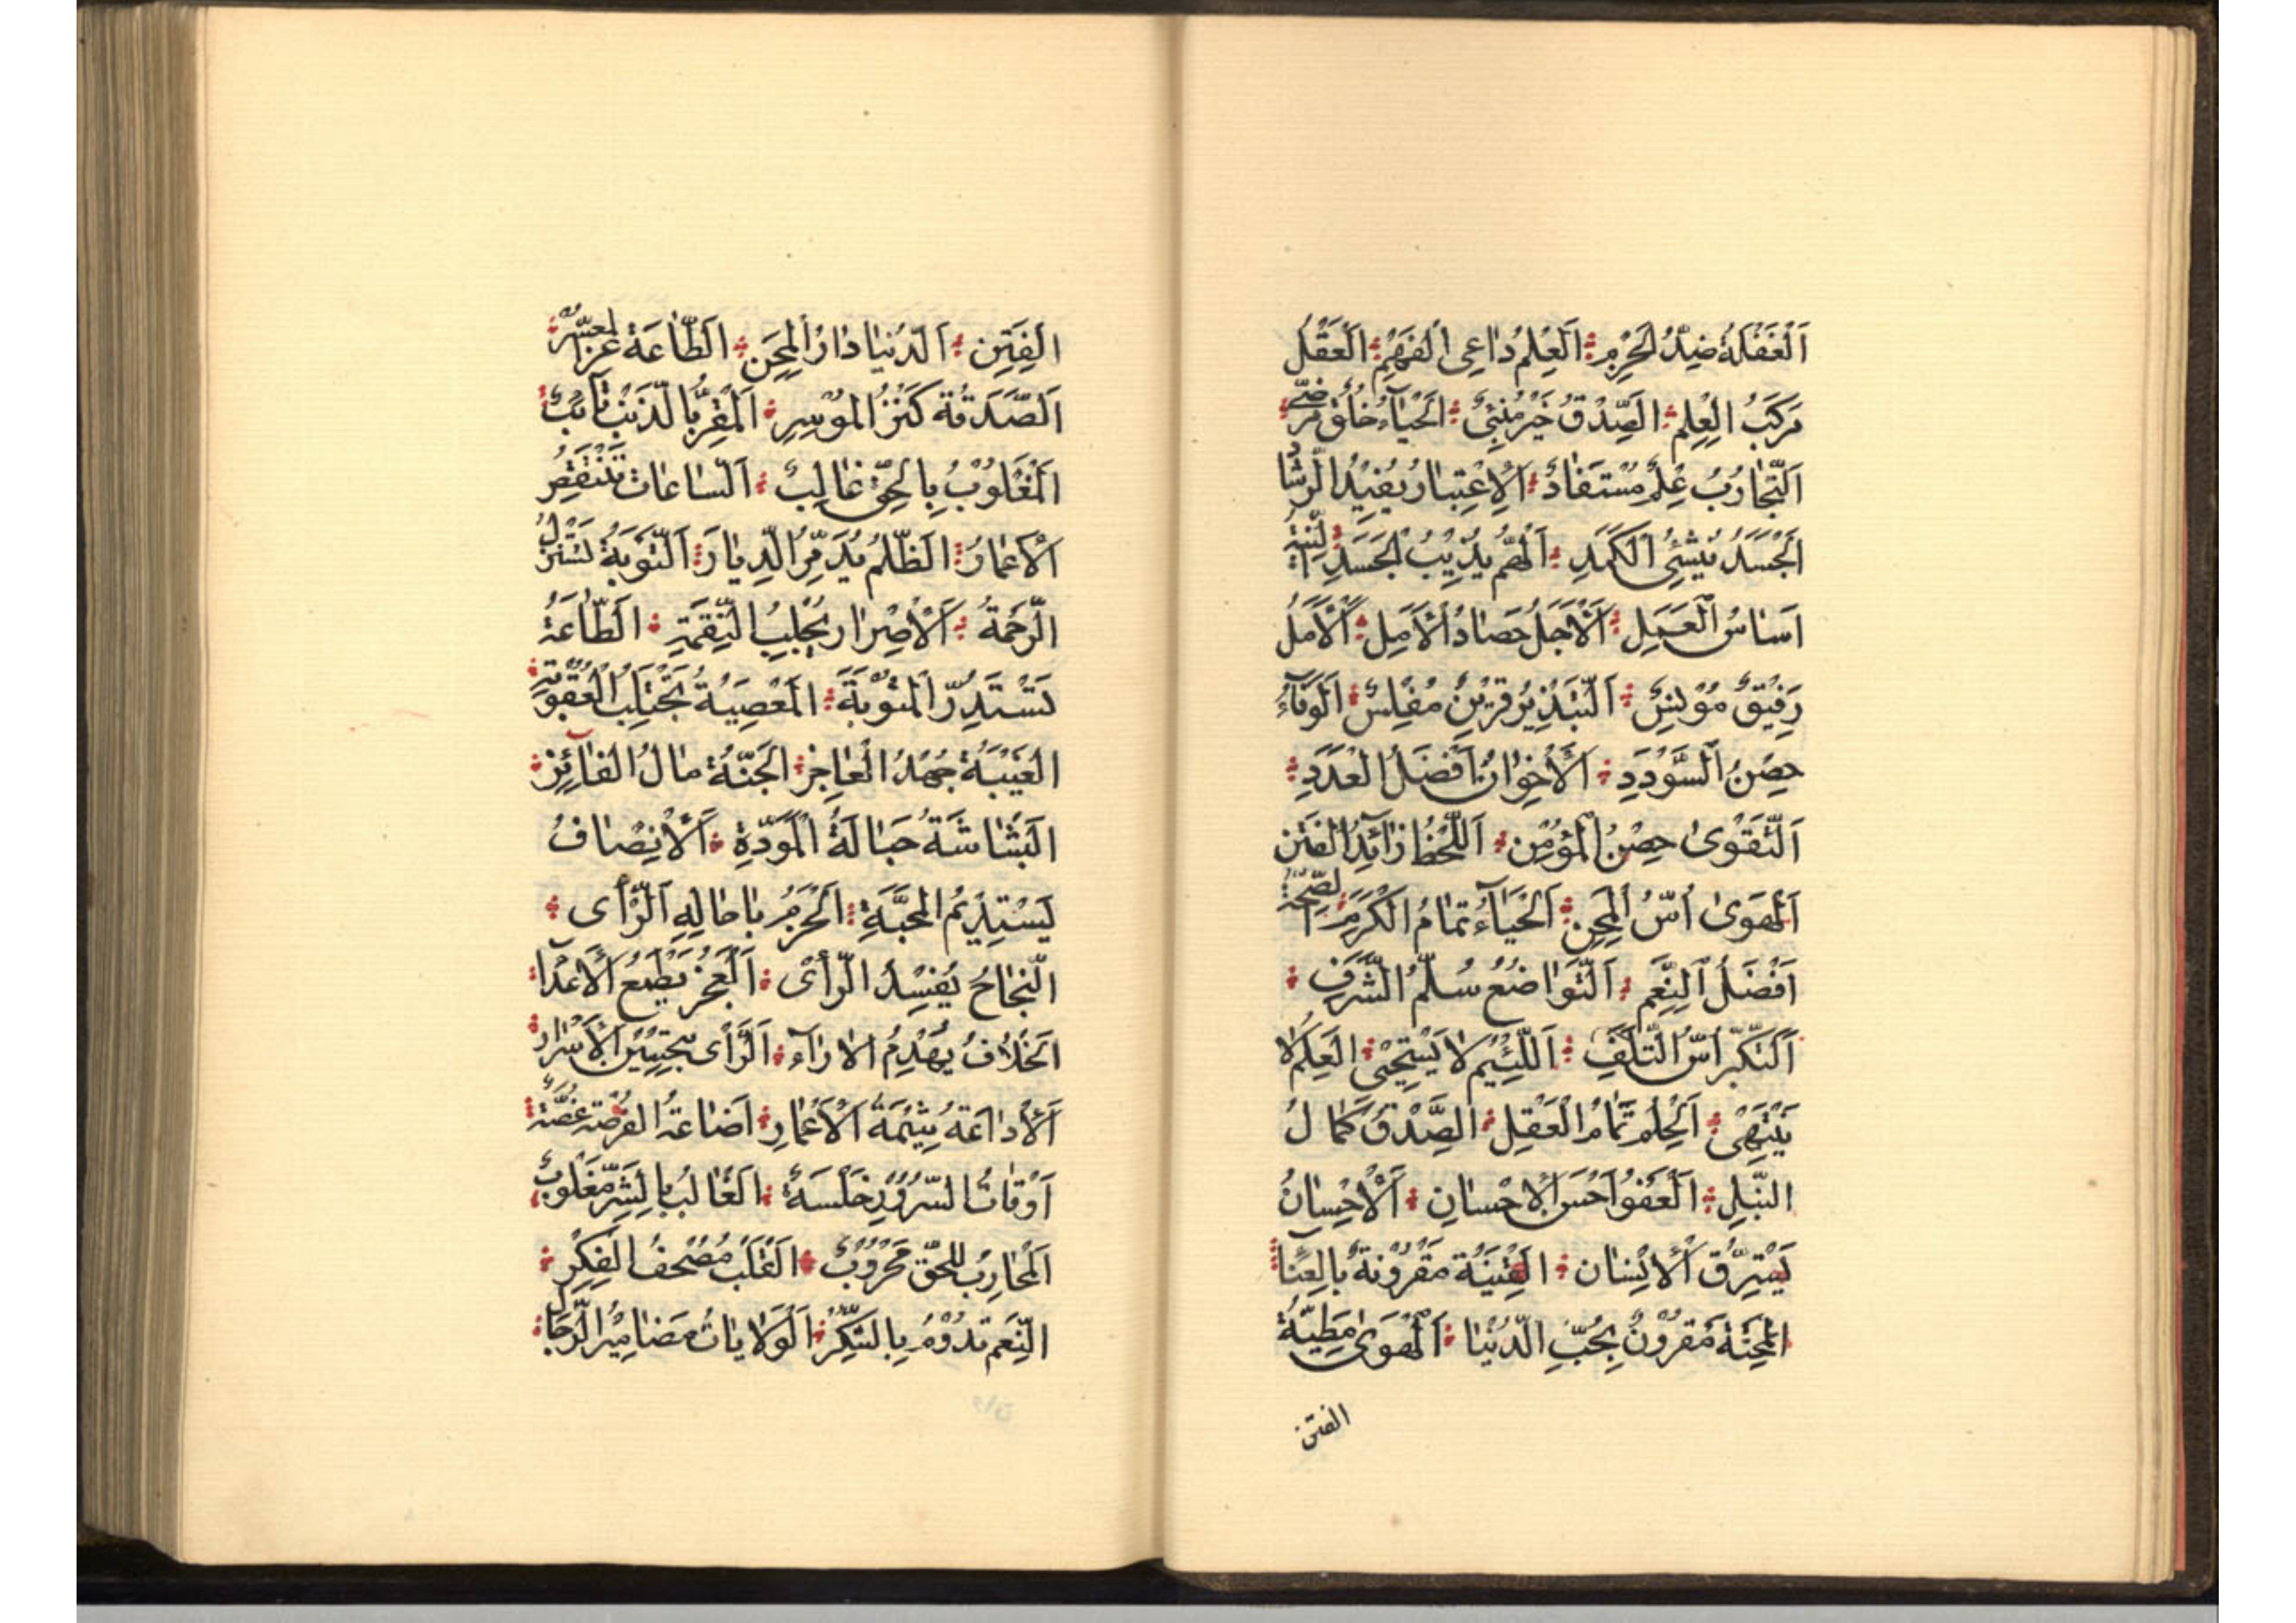 اَلْغَفْلَةُ ضِدُّ الْحَزْمِ اَلْعِلْمُ دٰاعِی الْفَهْمِ اَلْعَقْلُ
مَرْكَبُ الْعِلْمِ اَلصِّدْقُ خَیْرُ مُنْبِئٍ اَلْحَیٰآءُ خُلُقٌ مَرْضِیٌّ
اَلتَّجٰارُبُ عِلْمٌ مُسْتَفٰادٌ اَلْاِعْتِبٰارُ یُفِیْدُ الرَّشٰادَ
اَلْحَسَدُ یُنْشِئُ الْكَمَدِ اَلْهَمُّ یُذِیْبُ الْجَسَدِ اَلنِّیَّةُ
اَسٰاسُ الْعَمَلِ اَلْاَجَلُ حَصٰادُ الْاَمَلِ اَلْاَمَلُ
رَفِیْقٌ مُوْنِسٌ اَلتَّبْذِیْرُ قَرِیْنٌ مُفْلِسٌ اَلْوَفٰآءُ
حِصْنُ السُّوْدَدِ اَلْاِخْوٰانُ اَفْضَلُ الْعُدَدِ
اَلتَّقْوٰی حِصْنُ الْمُؤْمِنِ اَللَّحْظُ رٰآئِدُ الْفِتَنِ
اَلْهَوٰی اُسُّ الْمِحَنِ اَلْحَیٰآءُ تَمٰامُ الْكَرَمِ اَلصِّحَّةُ
اَفْضَلُ النِّعَمِ اَلتَّوٰاضُعُ سُلَّمُ الشَّرَفِ
اَلتَّكَبُّرُ اُسُّ التَّلَفِ اَللَّئِیْمُ لَا یَسْتَحْیِیْ اَلْعِلْمُ لَا
یَنْتَهِیْ اَلْحِلْمُ تَمٰامُ الْعَقْلِ اَلصِّدْقُ كَمٰالُ
النُّبْلِ اَلْعَفْوُ اَحْسَنُ الْاِحْسٰانِ اَلْاِحْسٰانُ
یَسْتَرِقُّ الْاِنْسٰانَ اَلْقِنْیَةُ مَقْرُوْنَةٌ بِالْعَنٰآءِ
اَلْمِحْنَةُ مَقْرُوْنٌ بِحُبِّ الدُّنْیٰا اَلْهَوٰی مَطِیَّةُ
الفتن
الْفِتَنِ اَلدُّنْیٰا دٰارُ الْمِحَنِ اَلطّٰاعَةُ عِزُّ الْمُعْسِرِ
اَلصَّدَقَةُ كَنْزُ الْمُوْسِرِ اَلْمُقِرُّ بِالذَّنْبِ تٰآئِبٌ
اَلْمَغْلُوْبُ بِالْحَقِّ غٰالِبٌ اَلسّٰاعٰاتُ تَنْقُصُ
الْاَعْمٰارَ اَلظُّلْمُ یُدَمِّرُ الدِّیٰارَ اَلتَّوْبَةُ تَسْتَنْزِلُ
الرَّحْمَةَ اَلْاِصْرٰارُ یَجْلِبُ النِّقْمَةِ اَلطّٰاعَةُ
تَسْتَدِرُّ الْمَثُوْبَةَ اَلْمَعْصِیَةُ تَجْتَلِبُ الْعُقُوْبَةِ
اَلْغِیْبَةُ جُهْدُ الْعٰاجِزِ اَلْجَنَّةُ مٰالُ الْفٰآئِزِ
اَلْبَشٰاشَةُ حِبٰالَةُ الْمَوَدَّةِ اَلْاِنْصٰافُ
یَسْتَدِیْمُ الْمَحَبَّةِ اَلْحَزْمُ بِاِحٰالَةِ الرَّأْی
اَللِّجٰاجُ یُفْسِدُ الرَّأْیَ اَلْعَجْزُ یُطْمِعُ الْاَعْدٰآءَ
اَلْخِلٰافُ یَهْدِمُ الْاٰرٰآءَ اَلرَّأْیُ بِتَحْصِیْنِ الْاَسْرٰارِ
اَلْاِذٰاعَةُ شِیْمَةُ الْاَغْمٰارِ اِضٰاعَةُ الْفُرْصَةِ غُصَّةٌ
اَوْقٰاتُ السُّرُوْرِ خَلْسَةٌ اَلْغٰالِبُ بِالشَّرِّ مَغْلُوْبٌ
اَلْمُحٰارِبُ لِلْحَقِّ مَحْرُوْبٌ اَلْقَلْبُ مُصْحَفُ الْفِكْرِ
اَلنِّعَمُ تَدُوْمُ بِالشُّكْرِ اَلْوِلٰایٰاتُ مَضٰامِیْرُ الرِّجٰالِ